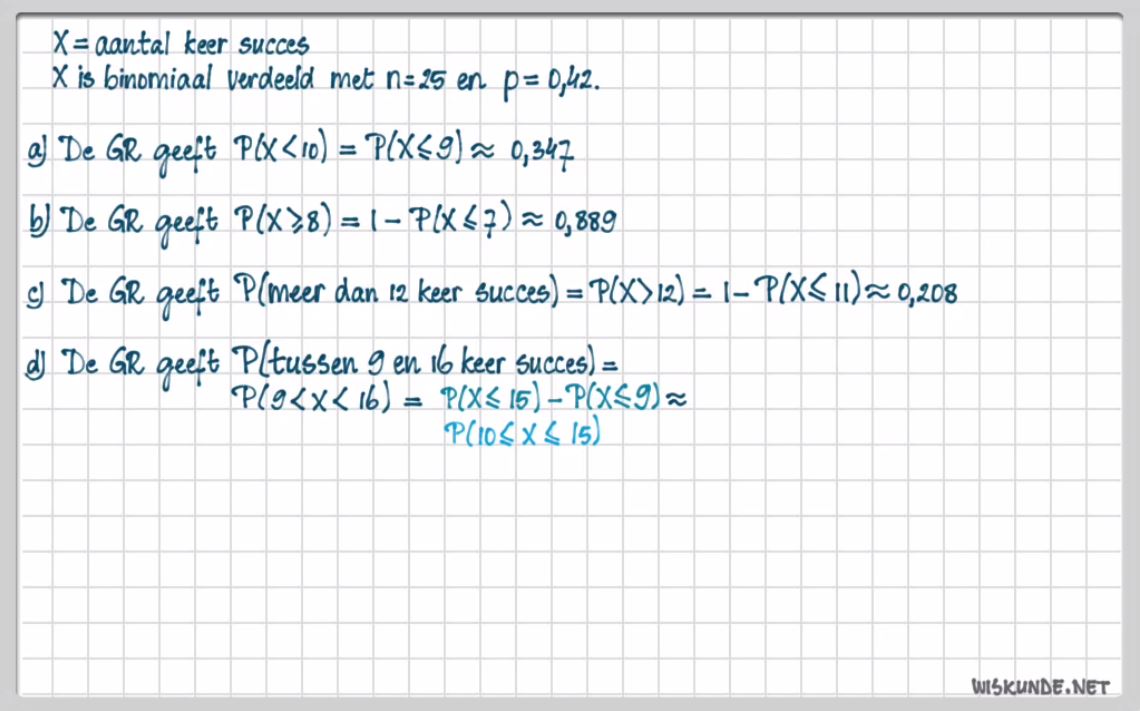 X = aantal keer succes
X is binomiaal verdeeld met n=25 en p=0,42.
a) De GR geeft P(X<10) = P(X⩽9) ≈ 0,347
b) De GR geeft P(X⩾8) = 1 - P(X⩽7) ≈ 0,889
c) De GR geeft P(meer dan 12 keer succes) = P(X>12) = 1 - P(X⩽11) ≈ 0,208
d) De GR geeft P(tussen 9 en 16 keer succes) =
P(9<X<16) = P(X⩽15) - P(X⩽9) ≈
P(10⩽X⩽15)
WISKUNDE.NET